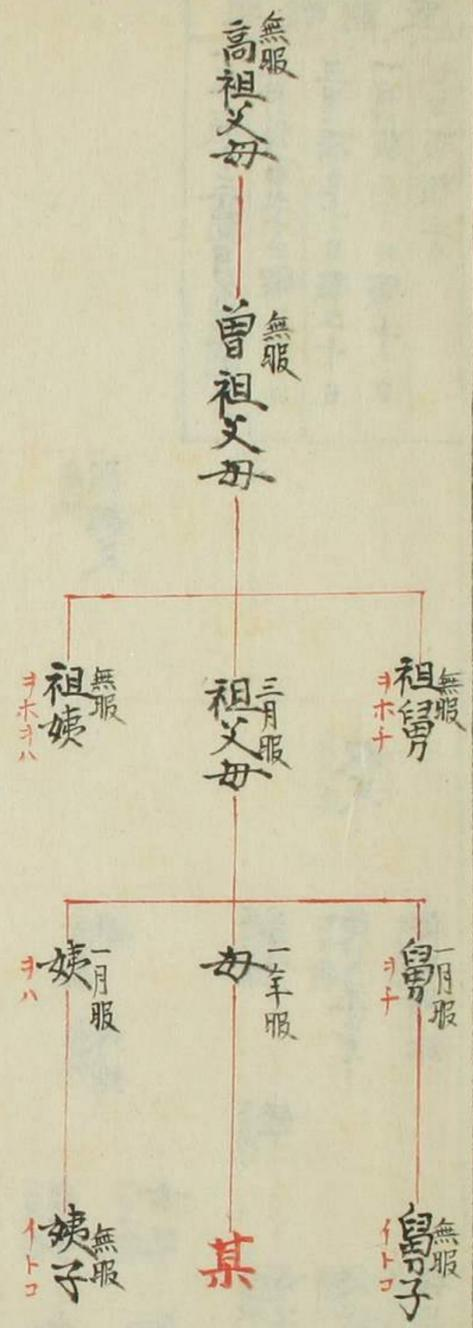 高祖父母
無服
曽祖父母
無服
祖舅
無服
ヲホヲチ
祖父母
三月服
祖姨
無服
ヲホヲハ
舅
一月服
ヲチ
母
一年服
姨
一月服
ヲハ
舅子
無服
イトコ
某
姨子
無服
イトコ